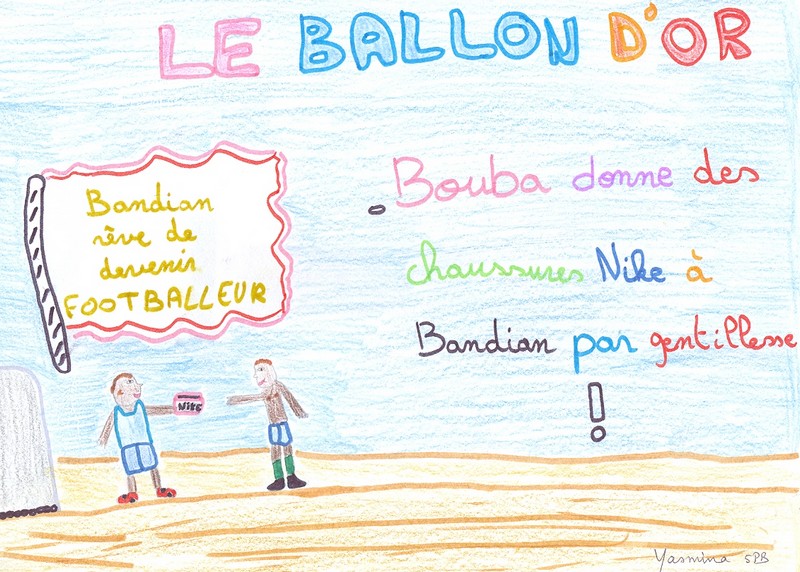 LE BALLON D'OR
Bandian
rêve de
devenir
FOOTBALLEUR
- Bouba donne des
chaussures Nike à
Bandian par gentillesse
!
NIKE
Yasmina 5PB